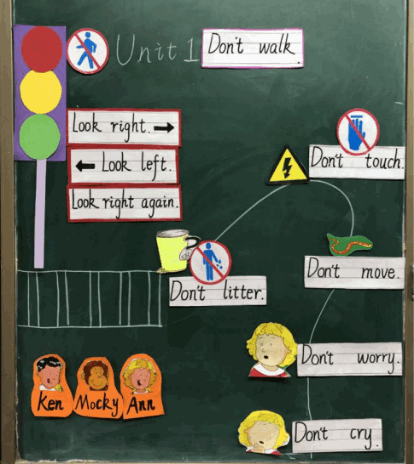 Unit 1 Don't walk.
Look right. →
← Look left.
Look right again.
Don't touch.
Don't litter.
Don't move.
Don't worry.
Don't cry.
Ken Mocky Ann